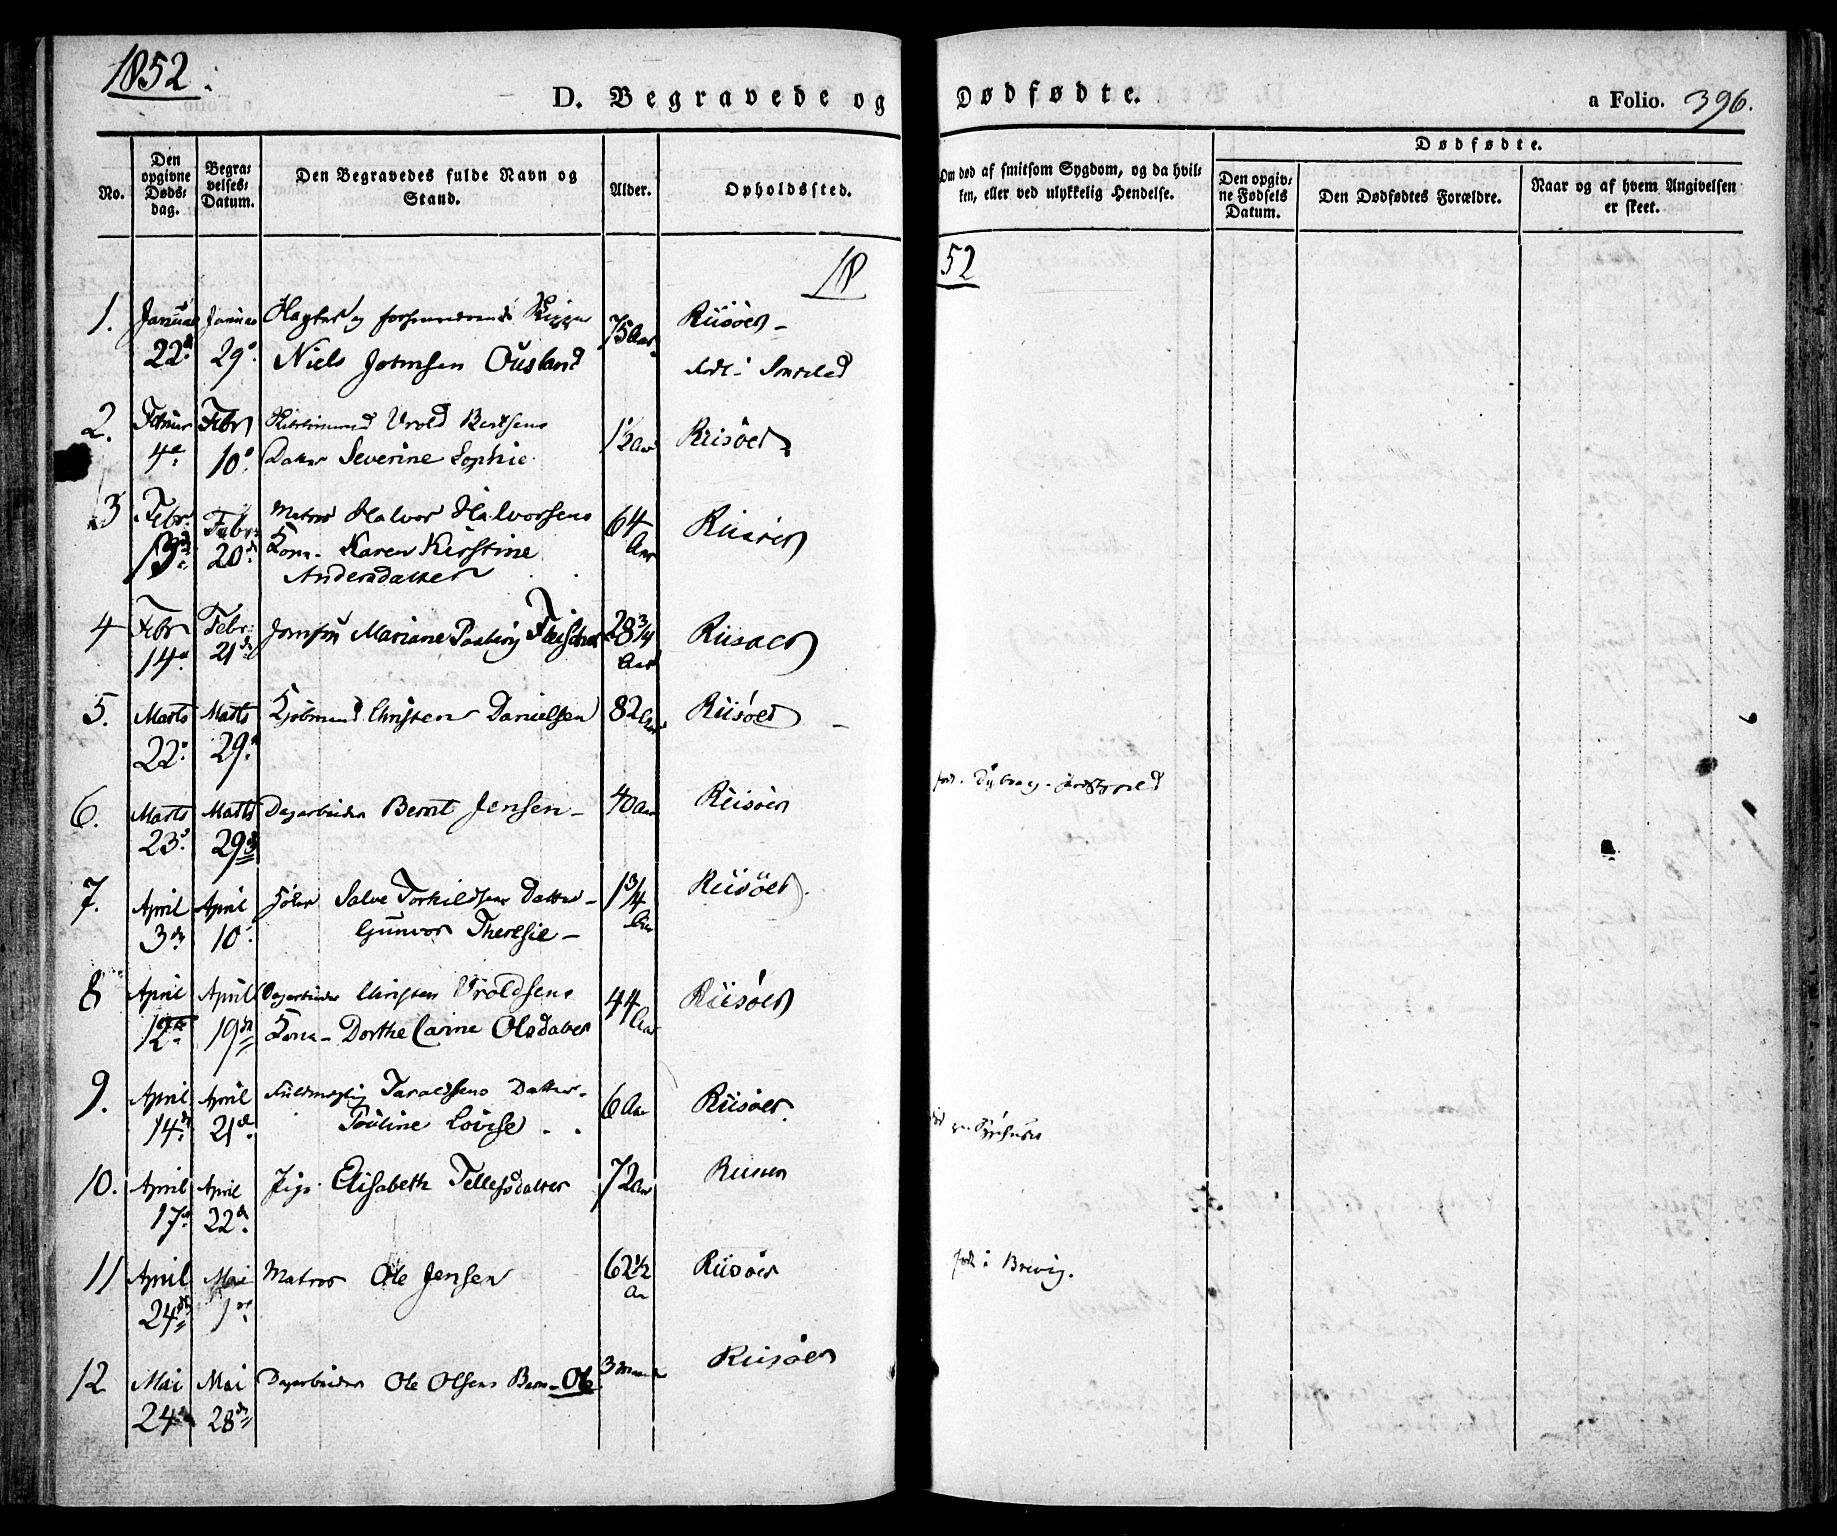 1852.
D. Begravede og Dødfødte.
a Folio. 396.
No.
Den opgivne Døds-dag.
Begra-velses-Datum.
Den Begravedes fulde Navn og Stand.
Alder.
Opholdssted.
Om død af smitsom Sygdom, og da hvil-ken, eller ved ulykkelig Hendelse.
Dødfødte.
Den opgiv-ne Fødsels Datum.
Den Dødfødtes Forældre.
Naar og af hvem Angivelsen er skeet.
1852
1. Januar Januar 75 Aar Riisøer
22 29 Niels Johnsen Ousland
2. Februar Febr Vrold Bentsens 1½ Aar Riisøer
4 10 Datter Severine Sophie
3 Febr. Febr. Matros Halvor Halvorsens 64 Aar Riisøer
13 20 Kone Karen Kirstine
Andersdatter
4 Febr Febr. Jomfru Mariane 28 3/4 Aar Riisøer
14 21
5. Marts Marts Kjøbmand Christen Danielsen 82 Aar Riisøer
22 29
6. Marts Marts Dagarbeider Bernt Jensen 40 Aar Riisøer
23 29
7. April April Salve Torkildsens Datter 1 3/4 Aar Riisøer
3 10 Gunvor Theresie
8 April April Dagarbeider Christen Vroldsens 44 Aar Riisøer
12 19 Kone Dorthe Carine Olsdatter
9. April April Fuldmægtig Taraldsens Datter 6 Aar Riisøer
14 21 Pouline Lovise
10. April April Pige Elisabeth Tellefsdatter 72 Aar Riisøer
17 22
11 April Mai Matros Ole Jensen 62 1/2 Aar Riisøer født i Brevig.
24 1
12 Mai Mai Dagarbeider Ole Olsens Barn Ole 3 Riisøer
24 28